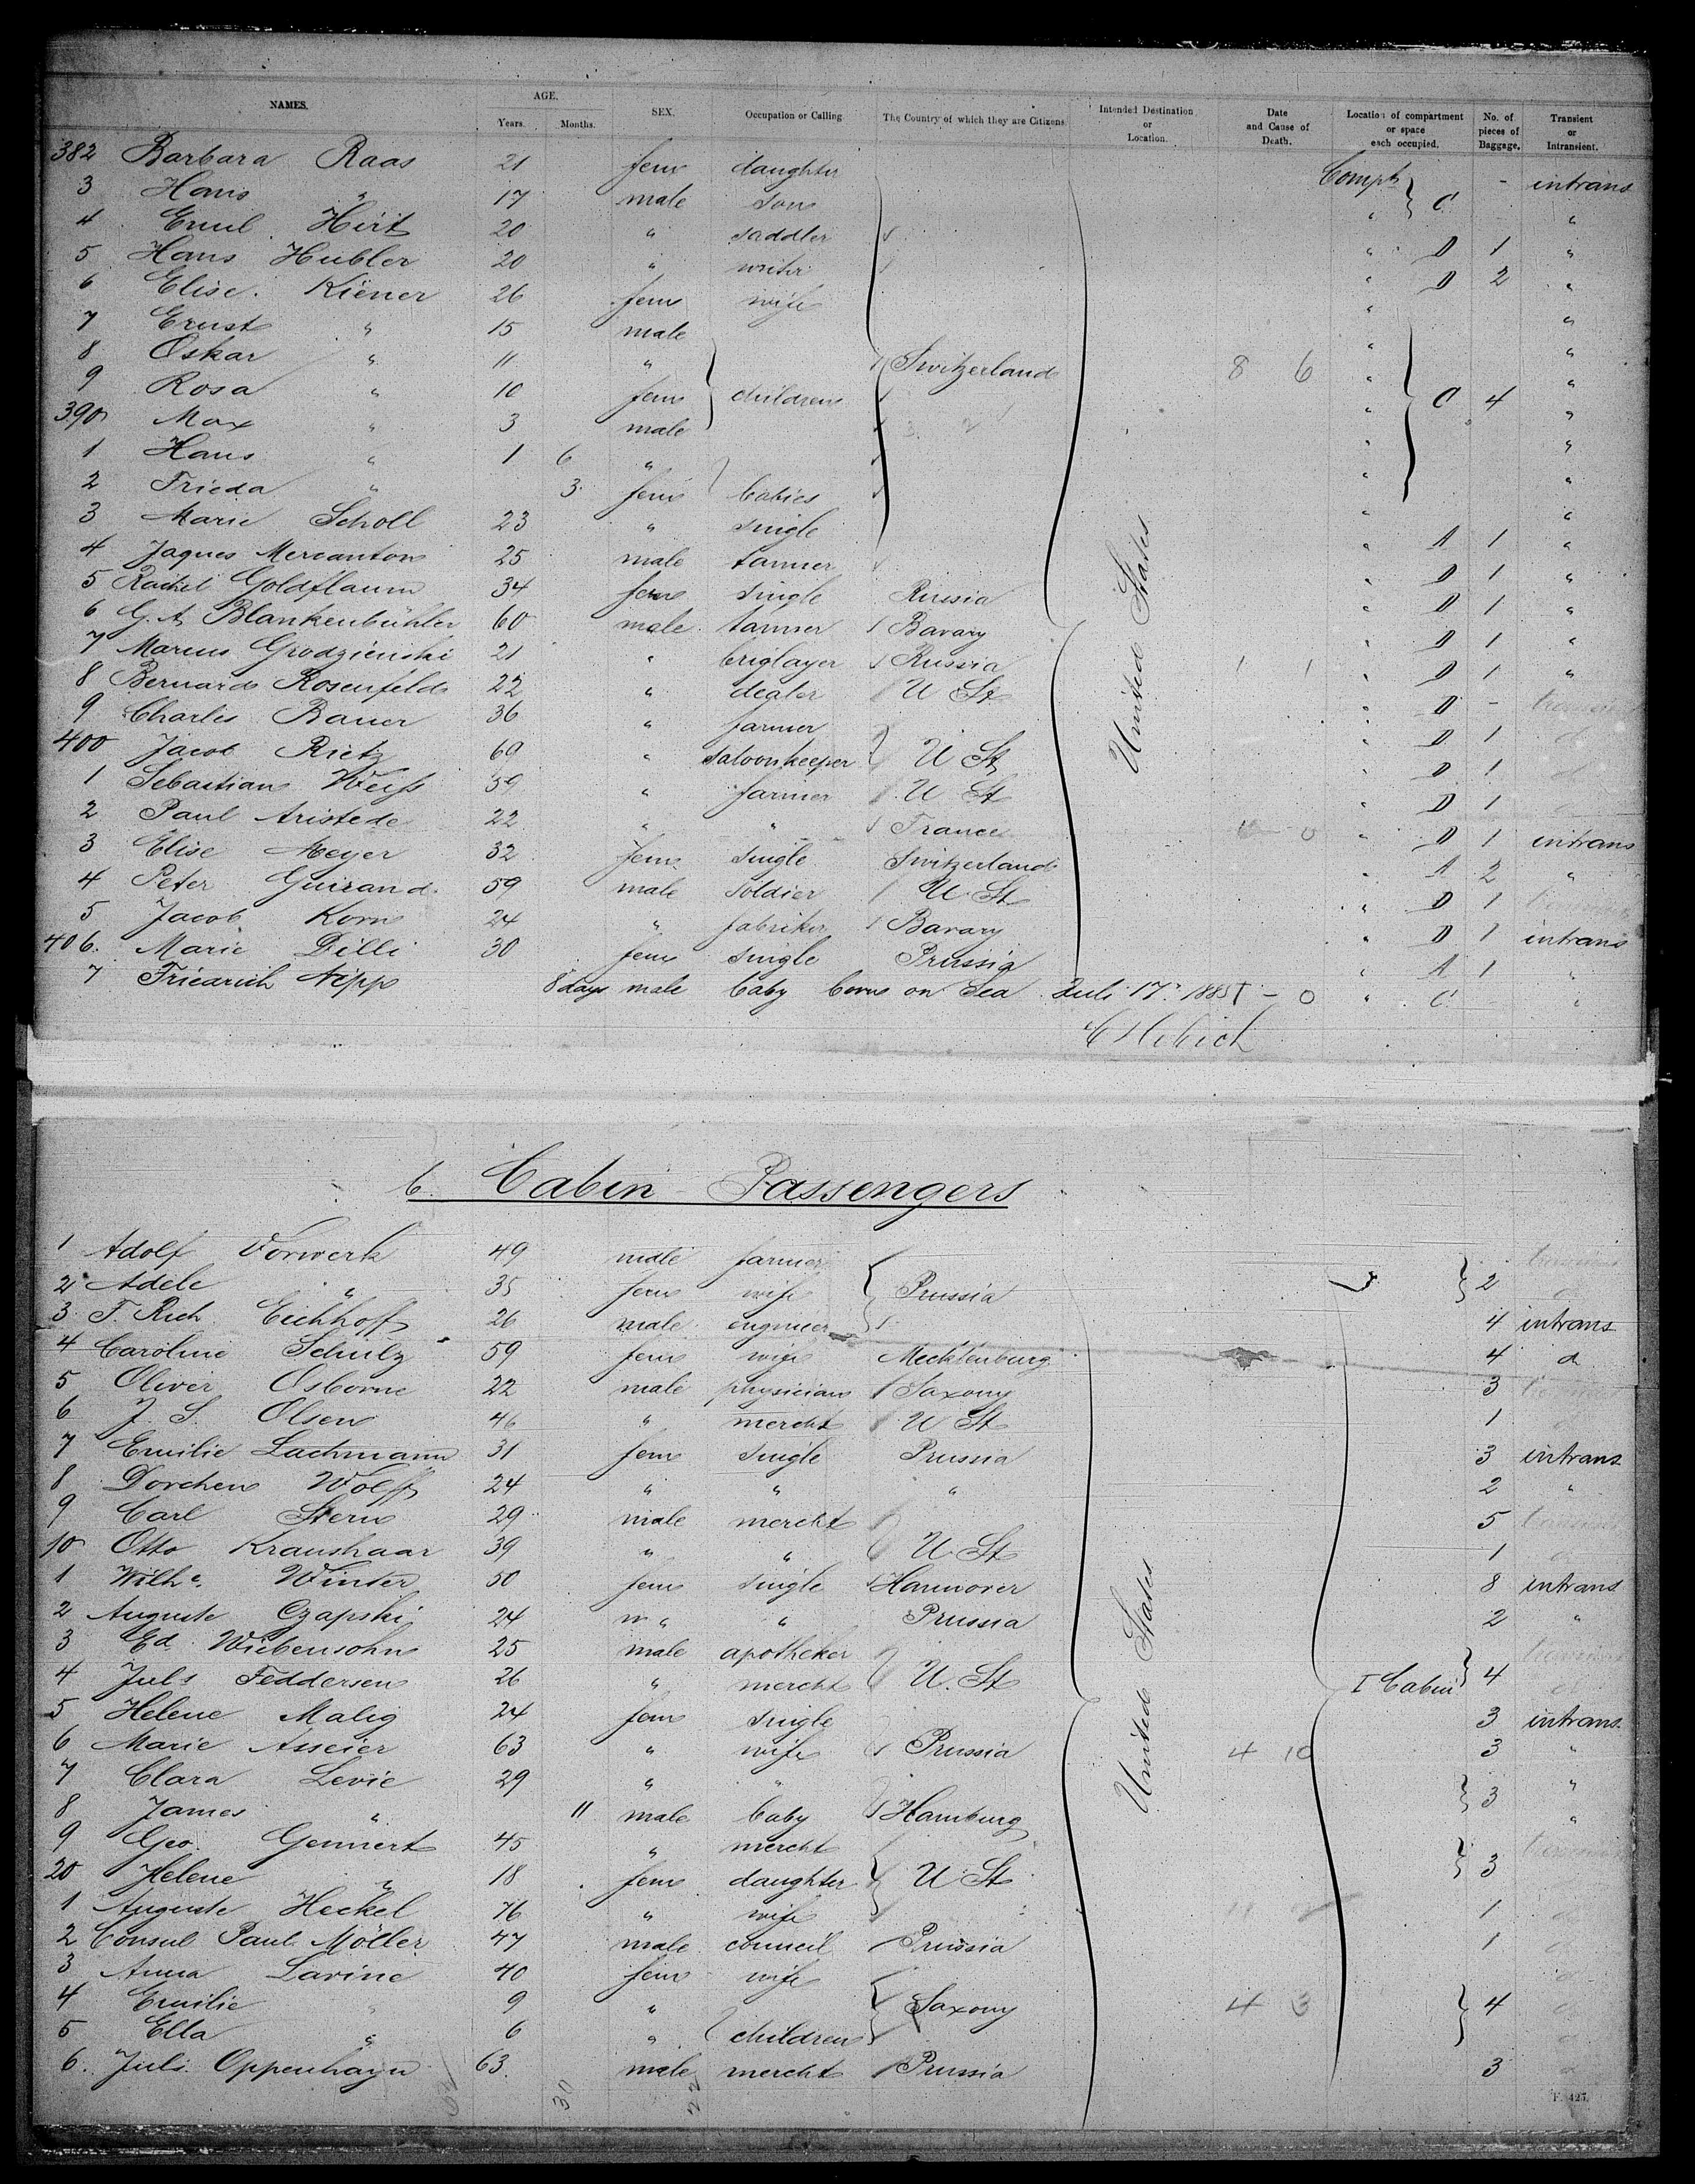 NAMES. AGE. Years. Months. SEX. Occupation or Calling The Country of which they are Citizens. Intended Destination or Location. Date and Cause of Death. Location of compartment or space each occupied. No. of pieces of Baggage. Transient or Intransient.
382 Barbara Raas 21 fem daughter Compt - intrans
3 Hans " 17 male son " C "
4 Emil Hirt 20 " saddler " D 1 "
5 Hans Hubler 20 " writer " D 2 "
6 Elise Kiener 26 fem wife " "
7 Ernst " 15 male " "
8 Oskar " 11 " Switzerland 8 6 " "
9 Rosa " 10 fem children " C 4 "
390 Max " 3 male " "
1 Hans " 1 6 " " "
2 Frieda " 3 fem babies " "
3 Marie Scholl 23 " single " A 1 "
4 Jaques Mercanton 25 male tanner " D 1 "
5 Rachel Goldflaum 34 fem single Russia " D 1 "
6 G. A. Blankenbühler 60 male tanner Bavary " D 1 "
7 Marcus Grodzienski 21 " briglayer Russia 1 1 " D 1 "
8 Bernard Rosenfeld 22 " dealer U St " D -
9 Charles Bauer 36 " farmer " D 1
400 Jacob Rietz 69 " saloonkeeper U St " D 1
1 Sebastian Weiss 59 " farmer U St " D 1
2 Paul Aristede 22 " " France " D 1 intrans
3 Elise Meyer 32 fem single Switzerland " A 2 "
4 Peter Guirand 59 male soldier U St " D 1
5 Jacob Korn 24 " fabriker Bavary " D 1 intrans
406. Marie Dilli 30 fem single Prussia " A 1 "
7 Friedrich Nipp 8 days male baby born on Sea Juli 17. 1885 - 0 " C "
United States
6. Cabin Passengers
1 Adolf Vorwerk 49 male farmer
2 Adele " 35 fem wife Prussia 2
3 F. Rich Eichhoff 26 male engineer 4 intrans
4 Caroline Schulz 59 fem wife Mecklenburg 4 d
5 Oliver Osborne 22 male physician Saxony 3
6 J. S. Olsen 46 " mercht U St 1
7 Emilie Lachmann 31 fem single Prussia 3 intrans
8 Dorchen Wolff 24 " " " 2 "
9 Carl Stern 29 male mercht 5
10 Otto Kraushaar 39 " " U St 1
1 Wilhe. Winter 50 fem single Hannover 8 intrans
2 Auguste Czapski 24 " " Prussia 2 "
3 Ed. Wiebensohn 25 male apotheker
4 Juls Feddersen 26 " mercht U. St I Cabin 4
5 Helene Malig 24 fem single 3 intrans
6 Marie Asseier 63 " wife Prussia 4 10 3 "
7 Clara Levie 29 " " 3 "
8 James " 11 male baby Hamburg "
9 Geo. Gennert 45 " mercht
20 Helene " 18 fem daughter U St 3
1 Auguste Heckel 76 " wife 1
2 Consul Paul Möller 47 male council Prussia 1
3 Anna Lavine 40 fem wife
4 Emilie " 9 " Saxony 4 3 4
5 Ella " 6 " children
6. Juls. Oppenhayn 63. male mercht Prussia 3
United States
30 22
F. 427.